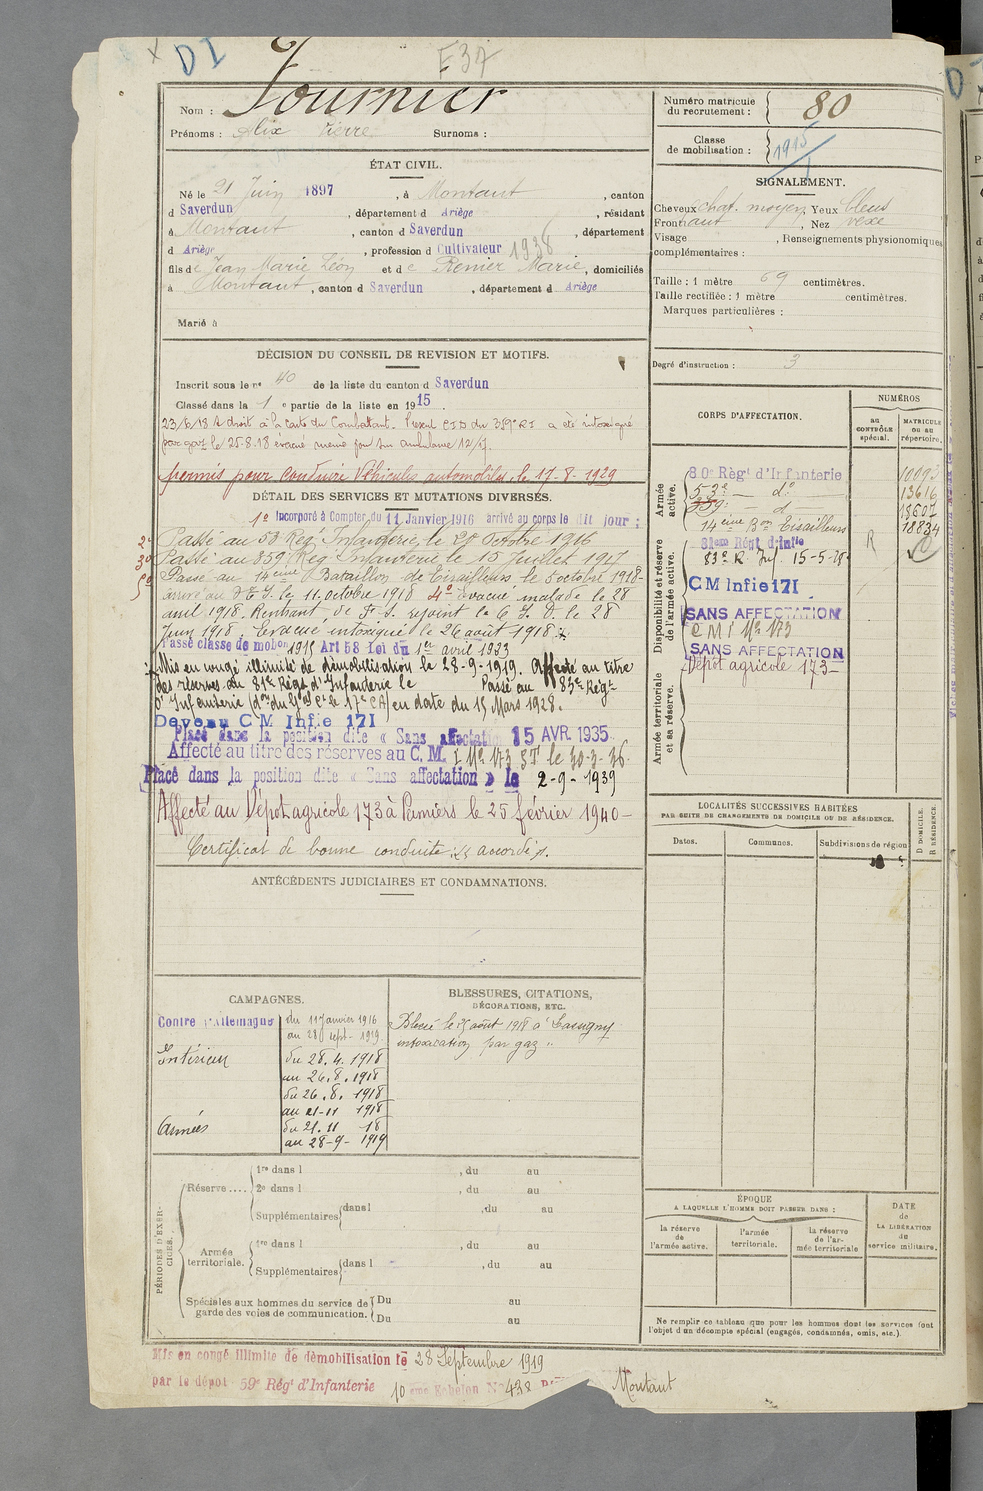 DI
E 37
Nom : Fournier
Prénoms : Alix Pierre Surnoms :
Numéro matricule du recrutement : 80
Classe de mobilisation : 1915
ÉTAT CIVIL.
Né le 21 Juin 1897, à Montaut, canton
d Saverdun, département d Ariège, résident
à Montaut, canton d Saverdun, département
d Ariège, profession d Cultivateur 1938
fils de Jean Marie Léon et de Renier Marie, domiciliés
à Montaut, canton d Saverdun, département d Ariège
Marié à
SIGNALEMENT.
Cheveux chat. moyen, Yeux bleus
Front haut, Nez vexe
Visage , Renseignements physionomiques
complémentaires :
Taille : 1 mètre 69 centimètres.
Taille rectifiée : 1 mètre centimètres.
Marques particulières :
Degré d'instruction : 3
DÉCISION DU CONSEIL DE REVISION ET MOTIFS.
Inscrit sous le n° 40 de la liste du canton d Saverdun
Classé dans la 1e partie de la liste en 1915.
droit à la carte du Combattant. CID du 359e RI a été intoxiqué
par gaz le 25-8-18 évacué même jour sur ambulance 12/
permis pour conduire Véhicules automobiles, le 17-8-1929
DÉTAIL DES SERVICES ET MUTATIONS DIVERSES.
1° Incorporé à Compter du 11 Janvier 1916 arrivé au corps le dit jour ;
2° Passé au 53 Rég. Infanterie, le 20 Octobre 1916
3° Passé au 359 Rég. Infanterie le 15 Juillet 1917
5° Passé au 14eme Bataillon de Tirailleurs le 5 octobre 1918
arrivé au le 11 octobre 1918 4° Evacué malade le 28
avril 1918. Rentrant de rejoint le 6 le 28
Juin 1918. Evacué intoxiqué le 26 août 1918.
Passé classe de mobon 1915 Art 58 Loi du 1er avril 1923
Mis en congé illimité de démobilisation le 28-9-1919. Affecté au titre
des réserves au 81e Régt d'Infanterie le Passé au 83e Régt
d'Infanterie en date du 15 Mars 1928.
Devenu C M Infie 171
Placé dans la position dite « Sans affectation 15 AVR. 1935
Affecté au titre des réserves au C. M. I No 173 le 30-3-36.
Placé dans la position dite « Sans affectation » le 2-9-1939
Affecté au Dépot agricole 173 à Pamiers le 25 février 1940
Certificat de bonne conduite : accordé.
CORPS D'AFFECTATION.
NUMÉROS
au CONTRÔLE spécial.
MATRICULE ou au répertoire.
Armée active.
80e Régt d'Infanterie
53e — do
359e — d
14eme Bon Tirailleurs 18834
Disponibilité et réserve de l'armée active.
81eme Régt d'Infie
83e R. Inf. 15-5-28
R
C M Infie 171
SANS AFFECTATION
C M I No 173
SANS AFFECTATION
Dépot agricole 173
Armée territoriale et sa réserve.
LOCALITÉS SUCCESSIVES HABITÉES
PAR SUITE DE CHANGEMENTS DE DOMICILE OU DE RÉSIDENCE.
Dates.
Communes.
Subdivisions de région
D DOMICILE.
R RÉSIDENCE.
ANTÉCÉDENTS JUDICIAIRES ET CONDAMNATIONS.
CAMPAGNES.
Contre l'Allemagne du 11 Janvier 1916
au 28 sept. 1919
Intérieur du 28.4.1918
au 26.8.1918
du 26.8.1918
au 21-11 1918
Armées du 21.11 18
au 28-9-1919
BLESSURES, CITATIONS,
DÉCORATIONS, ETC.
Blessé le 25 août 1918 à
intoxication par gaz
PÉRIODES D'EXERCICES.
Réserve .... 1re dans l , du au
2e dans l , du au
Supplémentaires dans l , du au
Armée territoriale. 1re dans l , du au
Supplémentaires dans l , du au
Spéciales aux hommes du service de garde des voies de communication. Du au
Du au
ÉPOQUE
A LAQUELLE L'HOMME DOIT PASSER DANS :
la réserve de l'armée active.
l'armée territoriale.
la réserve de l'armée territoriale
DATE de LA LIBÉRATION du service militaire.
Ne remplir ce tableau que pour les hommes dont les services font
l'objet d'un décompte spécial (engagés, condamnés, omis, etc.).
Mis en congé illimité de démobilisation le 28 Septembre 1919
par le dépôt 59e Régt d'Infanterie 10eme Echelon No 438
Montaut